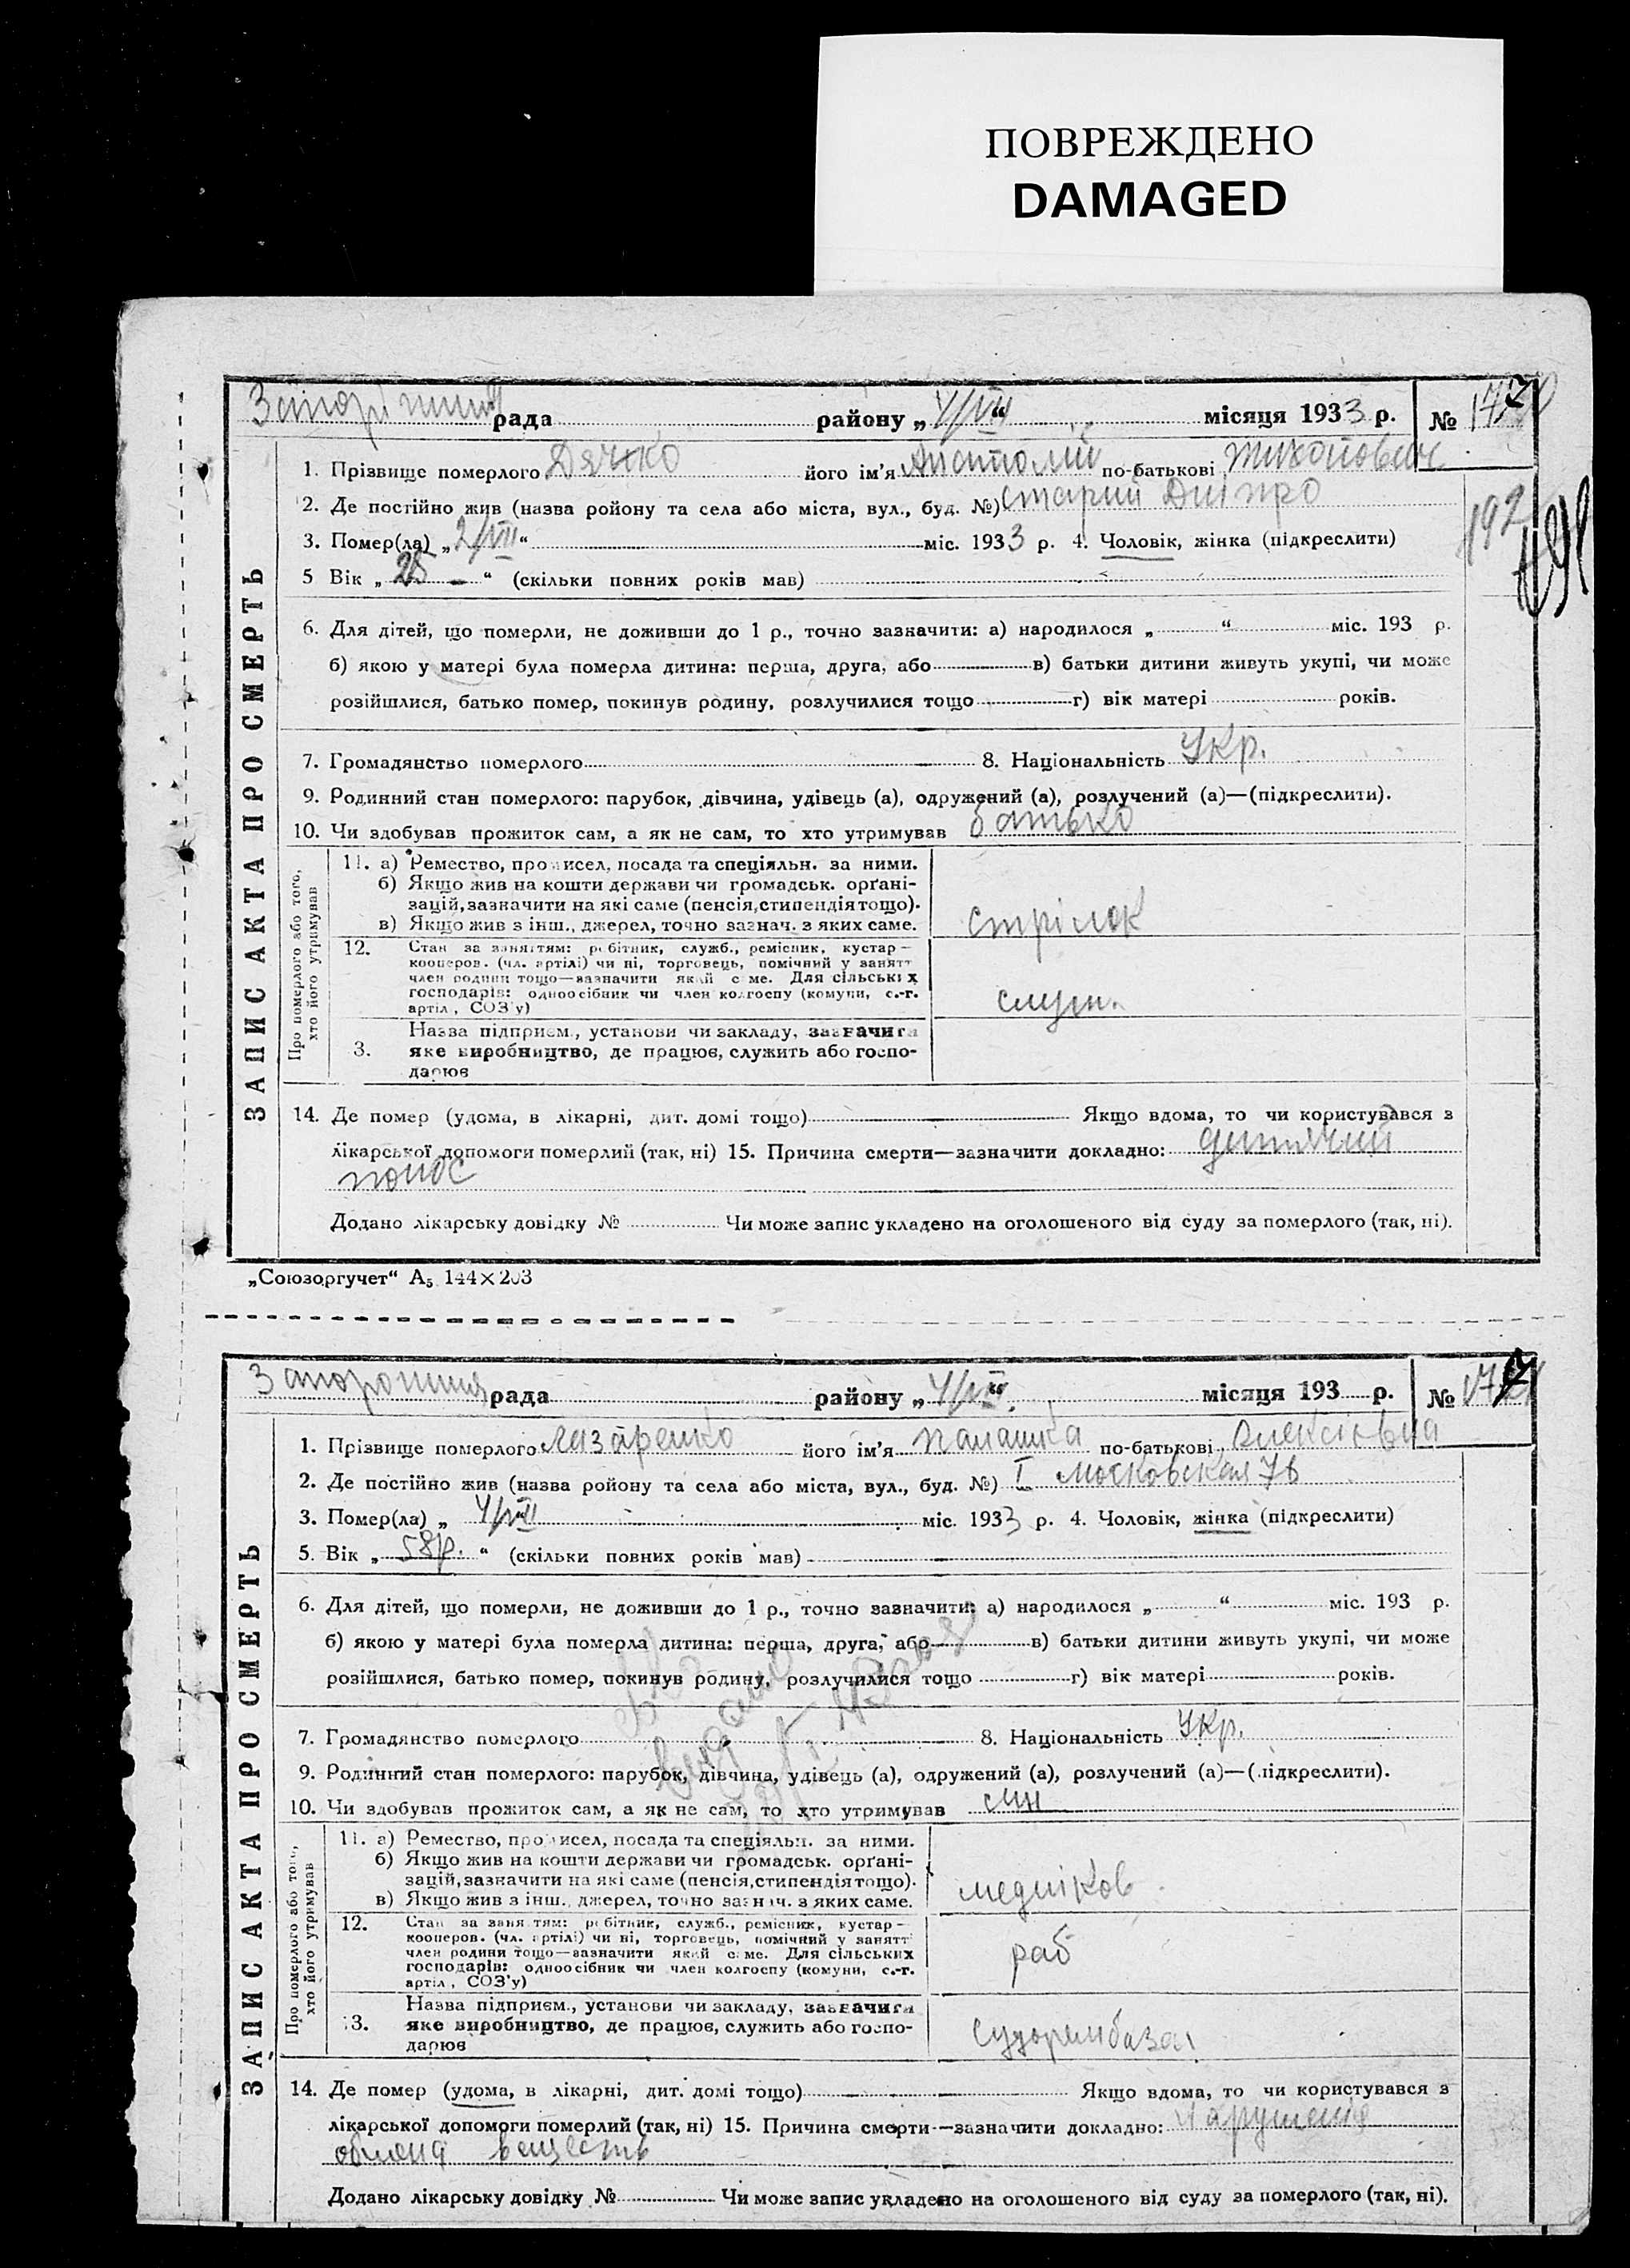 ПОВРЕЖДЕНО
DAMAGED
рада району „4/VII“ місяця 1933 р. №
1. Прізвище померлого Дячко його ім'я Анатолій по-батькові
2. Де постійно жив (назва ройону та села або міста, вул., буд. №) Старий Дніпро
3. Помер(ла) „2/VII“ міс. 1933 р. 4. Чоловік, жінка (підкреслити)
192
5 Вік „ “ (скільки повних років мав)
6. Для дітей, що померли, не доживши до 1 р., точно зазначити: а) народилося „ “ міс. 193 р.
б) якою у матері була померла дитина: перша, друга, або в) батьки дитини живуть укупі, чи може
розійшлися, батько помер, покинув родину, розлучилися тощо г) вік матері років.
7. Громадянство померлого 8. Національність Укр.
9. Родинний стан померлого: парубок, дівчина, удівець (а), одружений (а), розлучений (а)—(підкреслити).
10. Чи здобував прожиток сам, а як не сам, то хто утримував батько
ЗАПИС АКТА ПРО СМЕРТЬ
Про померлого або того,
хто його утримував
11. а) Ремество, промисел, посада та спеціяльн. за ними.
б) Якщо жив на кошти держави чи громадськ. орґані-
зацій, зазначити на які саме (пенсія, стипендія тощо).
в) Якщо жив з інш., джерел, точно зазнач. з яких саме.
стрілок
12. Стан за заняттям: робітник, служб., ремісник, кустар—
кооперов. (чл. артілі) чи ні, торговець, помічний у занятт
член родини тощо—зазначити який саме. Для сільських
господарів: одноосібник чи член колгоспу (комуни, с.-г.
артіл, СОЗ'у)
служ.
3. Назва підприєм., установи чи закладу, зазначити
яке виробництво, де працює, служить або госпо-
дарює
14. Де помер (удома, в лікарні, дит. домі тощо) Якщо вдома, то чи користувався з
лікарської допомоги померлий (так, ні) 15. Причина смерти—зазначити докладно: дитячий
понос
Додано лікарську довідку № Чи може запис укладено на оголошеного від суду за померлого (так, ні).
„Союзоргучет“ А5 144×203
рада району „4/VII“ місяця 193 р. №
1. Прізвище померлого Лазаренко його ім'я Палашка по-батькові Олексіївна
2. Де постійно жив (назва ройону та села або міста, вул., буд. №) I Московская 78
3. Помер(ла) „4/VII міс. 1933 р. 4. Чоловік, жінка (підкреслити)
5. Вік „58р.“ (скільки повних років мав)
6. Для дітей, що померли, не доживши до 1 р., точно зазначити: а) народилося „ “ міс. 193 р.
б) якою у матері була померла дитина: перша, друга, або в) батьки дитини живуть укупі, чи може
розійшлися, батько помер, покинув родину, розлучилися тощо г) вік матері років.
7. Громадянство померлого 8. Національність Укр.
9. Родинний стан померлого: парубок, дівчина, удівець (а), одружений (а), розлучений (а)—(підкреслити).
10. Чи здобував прожиток сам, а як не сам, то хто утримував син
ЗАПИС АКТА ПРО СМЕРТЬ
Про померлого або того,
хто його утримував
11. а) Ремество, промисел, посада та спеціяльн. за ними.
б) Якщо жив на кошти держави чи громадськ. орґані-
зацій, зазначити на які саме (пенсія, стипендія тощо).
в) Якщо жив з інш., джерел, точно зазнач. з яких саме.
медніков
12. Стан за заняттям: робітник, служб., ремісник, кустар—
кооперов. (чл. артілі) чи ні, торговець, помічний у занятт
член родини тощо—зазначити який саме. Для сільських
господарів: одноосібник чи член колгоспу (комуни, с.-г.
артіл, СОЗ'у)
раб
3. Назва підприєм., установи чи закладу, зазначити
яке виробництво, де працює, служить або госпо-
дарює
14. Де помер (удома, в лікарні, дит. домі тощо) Якщо вдома, то чи користувався з
лікарської допомоги померлий (так, ні) 15. Причина смерти—зазначити докладно: Нарушенія
обмена веществ
Додано лікарську довідку № Чи може запис укладено на оголошеного від суду за померлого (так, ні).